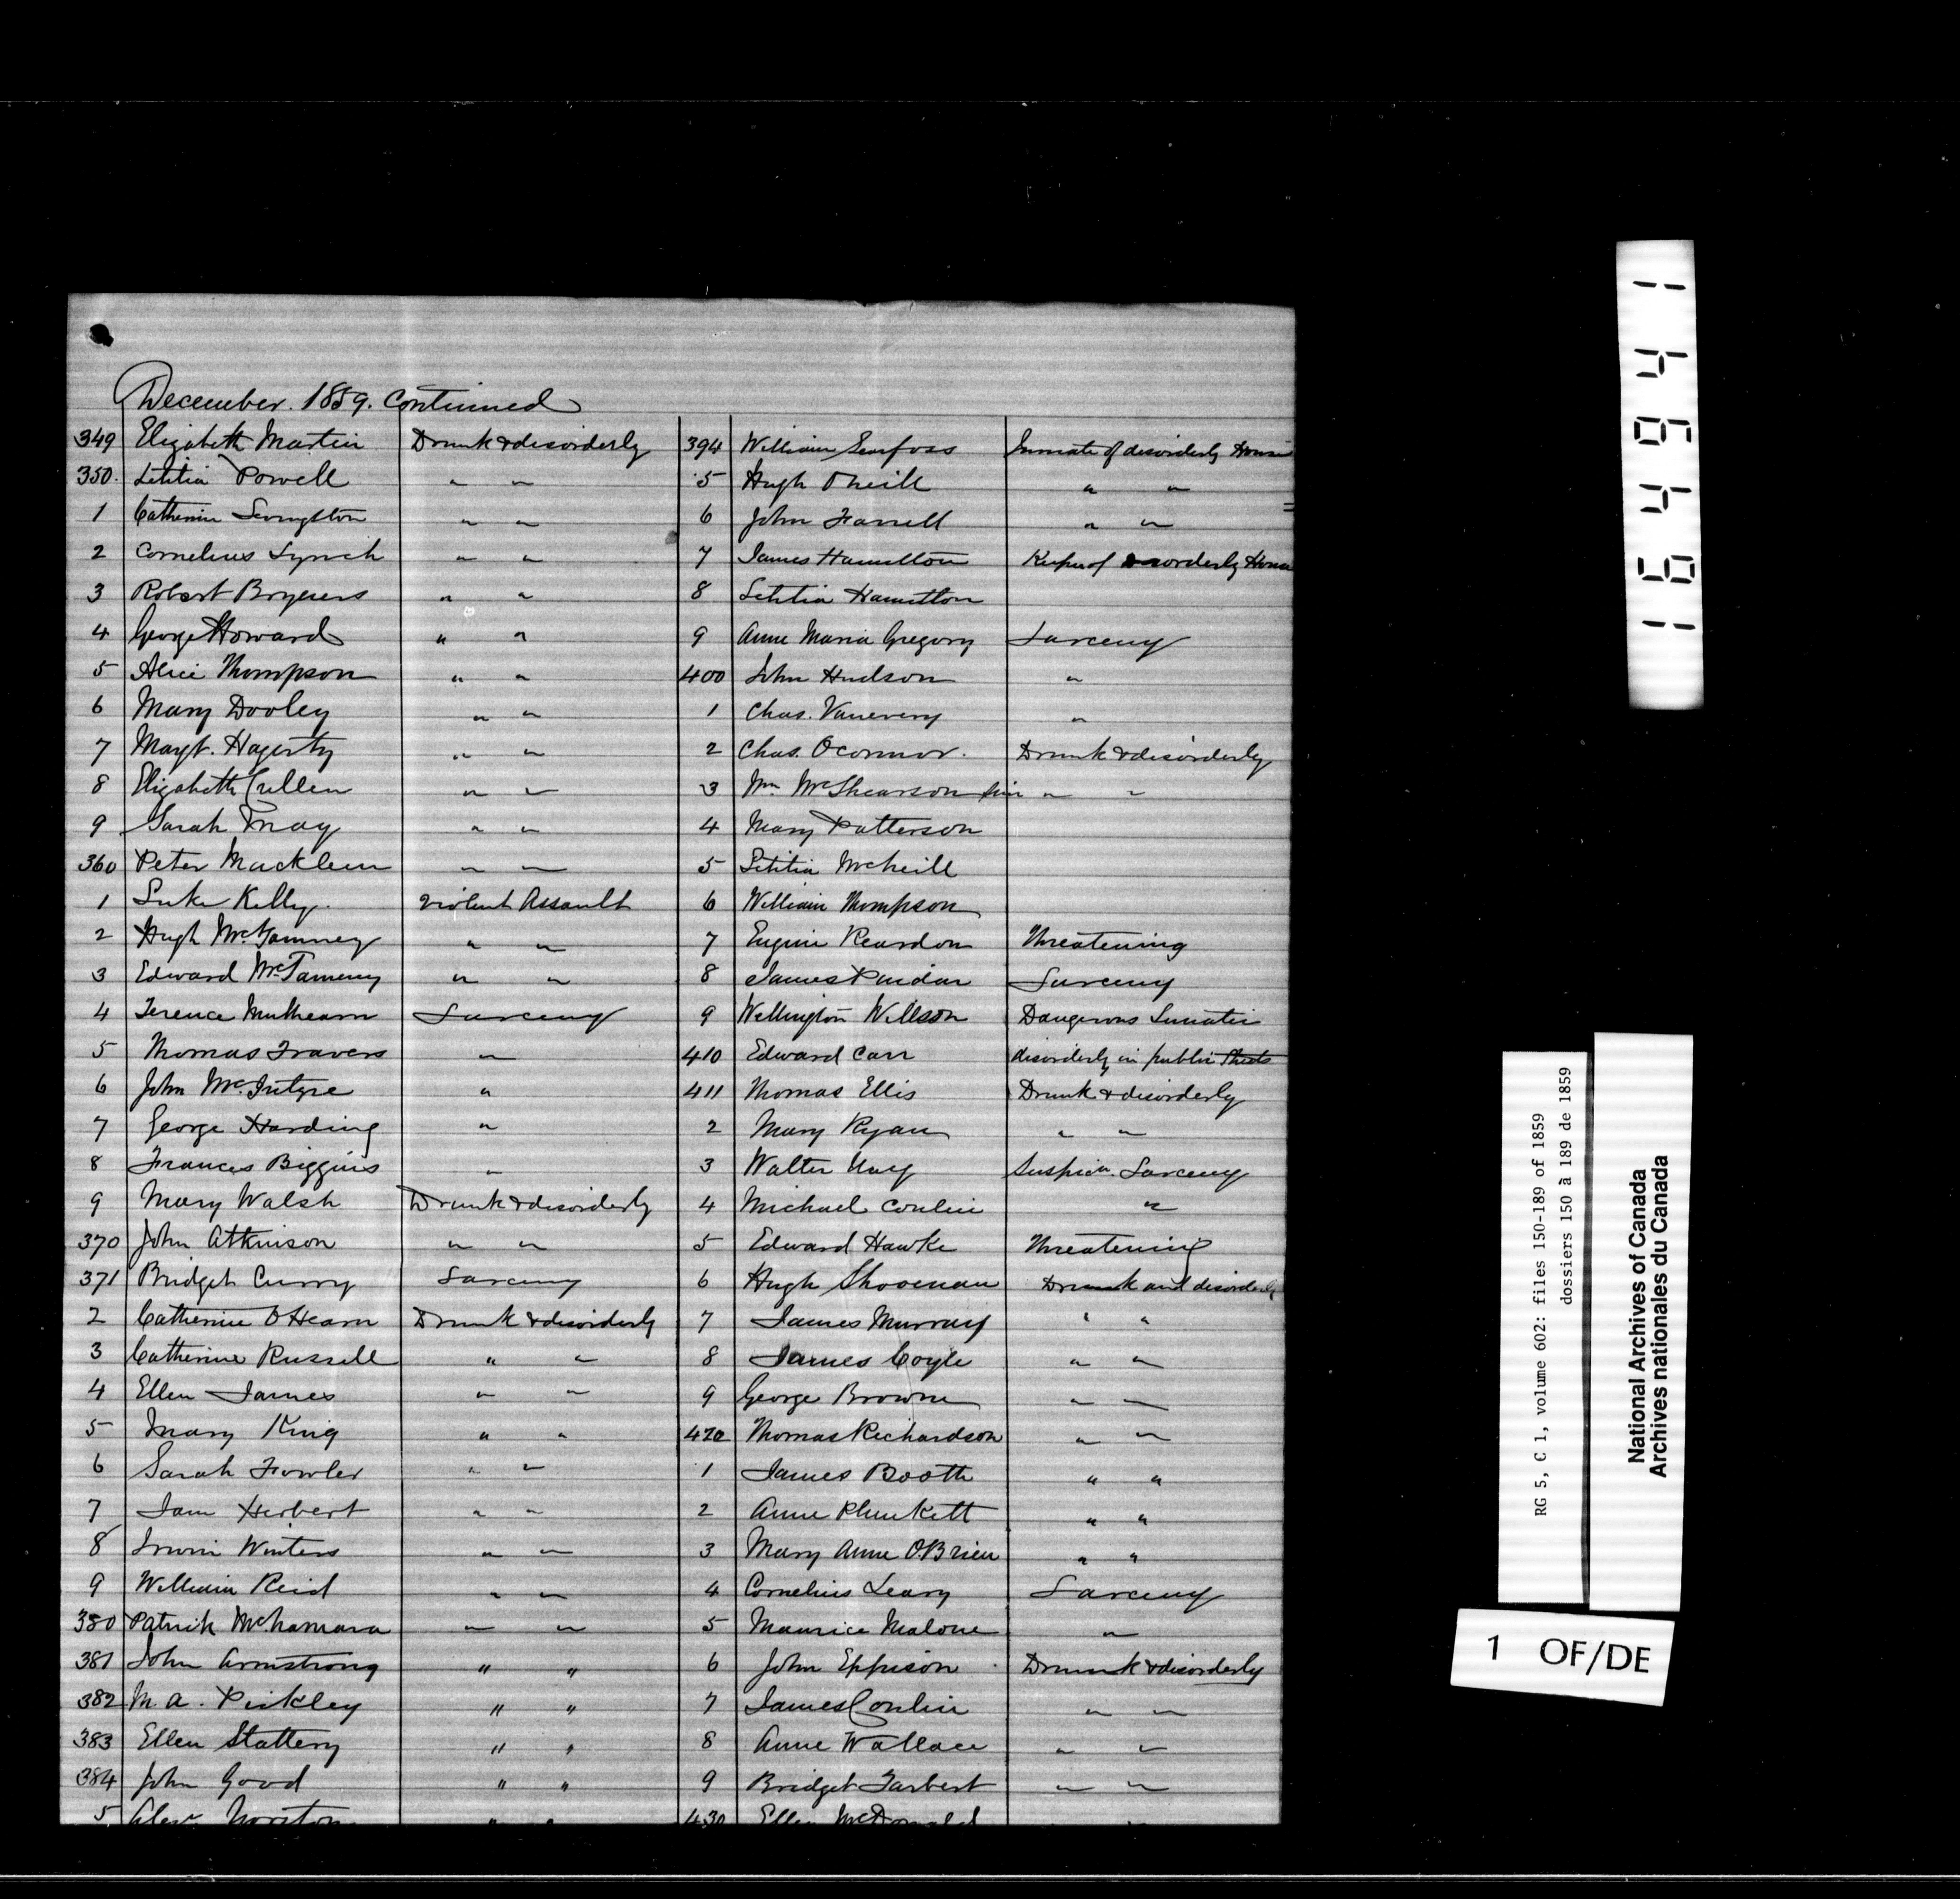 December. 1859. Continued
349 Elizabeth Martin Drunk & disorderly
350. Letitia Powell " "
1 Catherine Livingston " "
2 Cornelius Lynch " "
3 Robert " "
4 George Howard " "
5 Alice Thompson " "
6 Mary Dooley " "
7 Margt. Hagerty " "
8 Elizabeth Cullen " "
9 Sarah May " "
360 Peter Macklem " "
1 Luke Kelly. violent Assault
2 Hugh McTamney " "
3 Edward McTameny " "
4 Terence Mulhearn Larceny
5 Thomas Travers "
6 John McIntyre "
7 George Harding "
8 Frances Biggins "
9 Mary Walsh Drunk & disorderly
370 John Atkinson " "
371 Bridget Curry Larceny
2 Catherine OHearn Drunk & disorderly
3 Catherine Russell " "
4 Ellen James " "
5 Mary King " "
6 Sarah Fowler " "
7 Jam Herbert " "
8 Irwin Winters " "
9 William Reid " "
380 Patrick McNamara " "
381 John Armstrong " "
382 M. A. Pickley " "
383 Ellen Slattery " "
384 John Good " "
5 Alexr Norston " "
394 William Inmate of disorderly House
5 Hugh ONeill " "
6 John Farrell " "
7 James Hamilton Keeper of disorderly House
8 Letitia Hamilton
9 Anne Maria Gregory Larceny
400 John Hudson "
1 Chas. Vanevery "
2 Chas. Oconnor. Drunk & disorderly
3 Wm McShearson " "
4 Mary Patterson
5 Letitia McNeill
6 William Thompson
7 Eugine Reardon Threatening
8 James Larceny
9 Wellington Willson Dangerous Lunatic
410 Edward Carr disorderly in public Streets
411 Thomas Ellis Drunk & disorderly
2 Mary Ryan " "
3 Walter Suspicn. Larceny
4 Michael Conlin "
5 Edward Hawke Threatening
6 Hugh Shovenan Drunk and disorderly
7 James Murray " "
8 James Coyle " "
9 George Browne " "
420 Thomas Richardson " "
1 James Booth " "
2 Anne Plunkett " "
3 Mary Anne O.Brien " "
4 Cornelius Leary Larceny
5 Maurice Malone "
6 John Eppison Drunk & disorderly
7 James Conlin " "
8 Anne Wallace " "
9 Bridget Tarbert " "
430 Ellen McDonald " "
RG 5, C 1, volume 602: files 150-189 of 1859
dossiers 150 à 189 de 1859
National Archives of Canada
Archives nationales du Canada
1 OF/DE